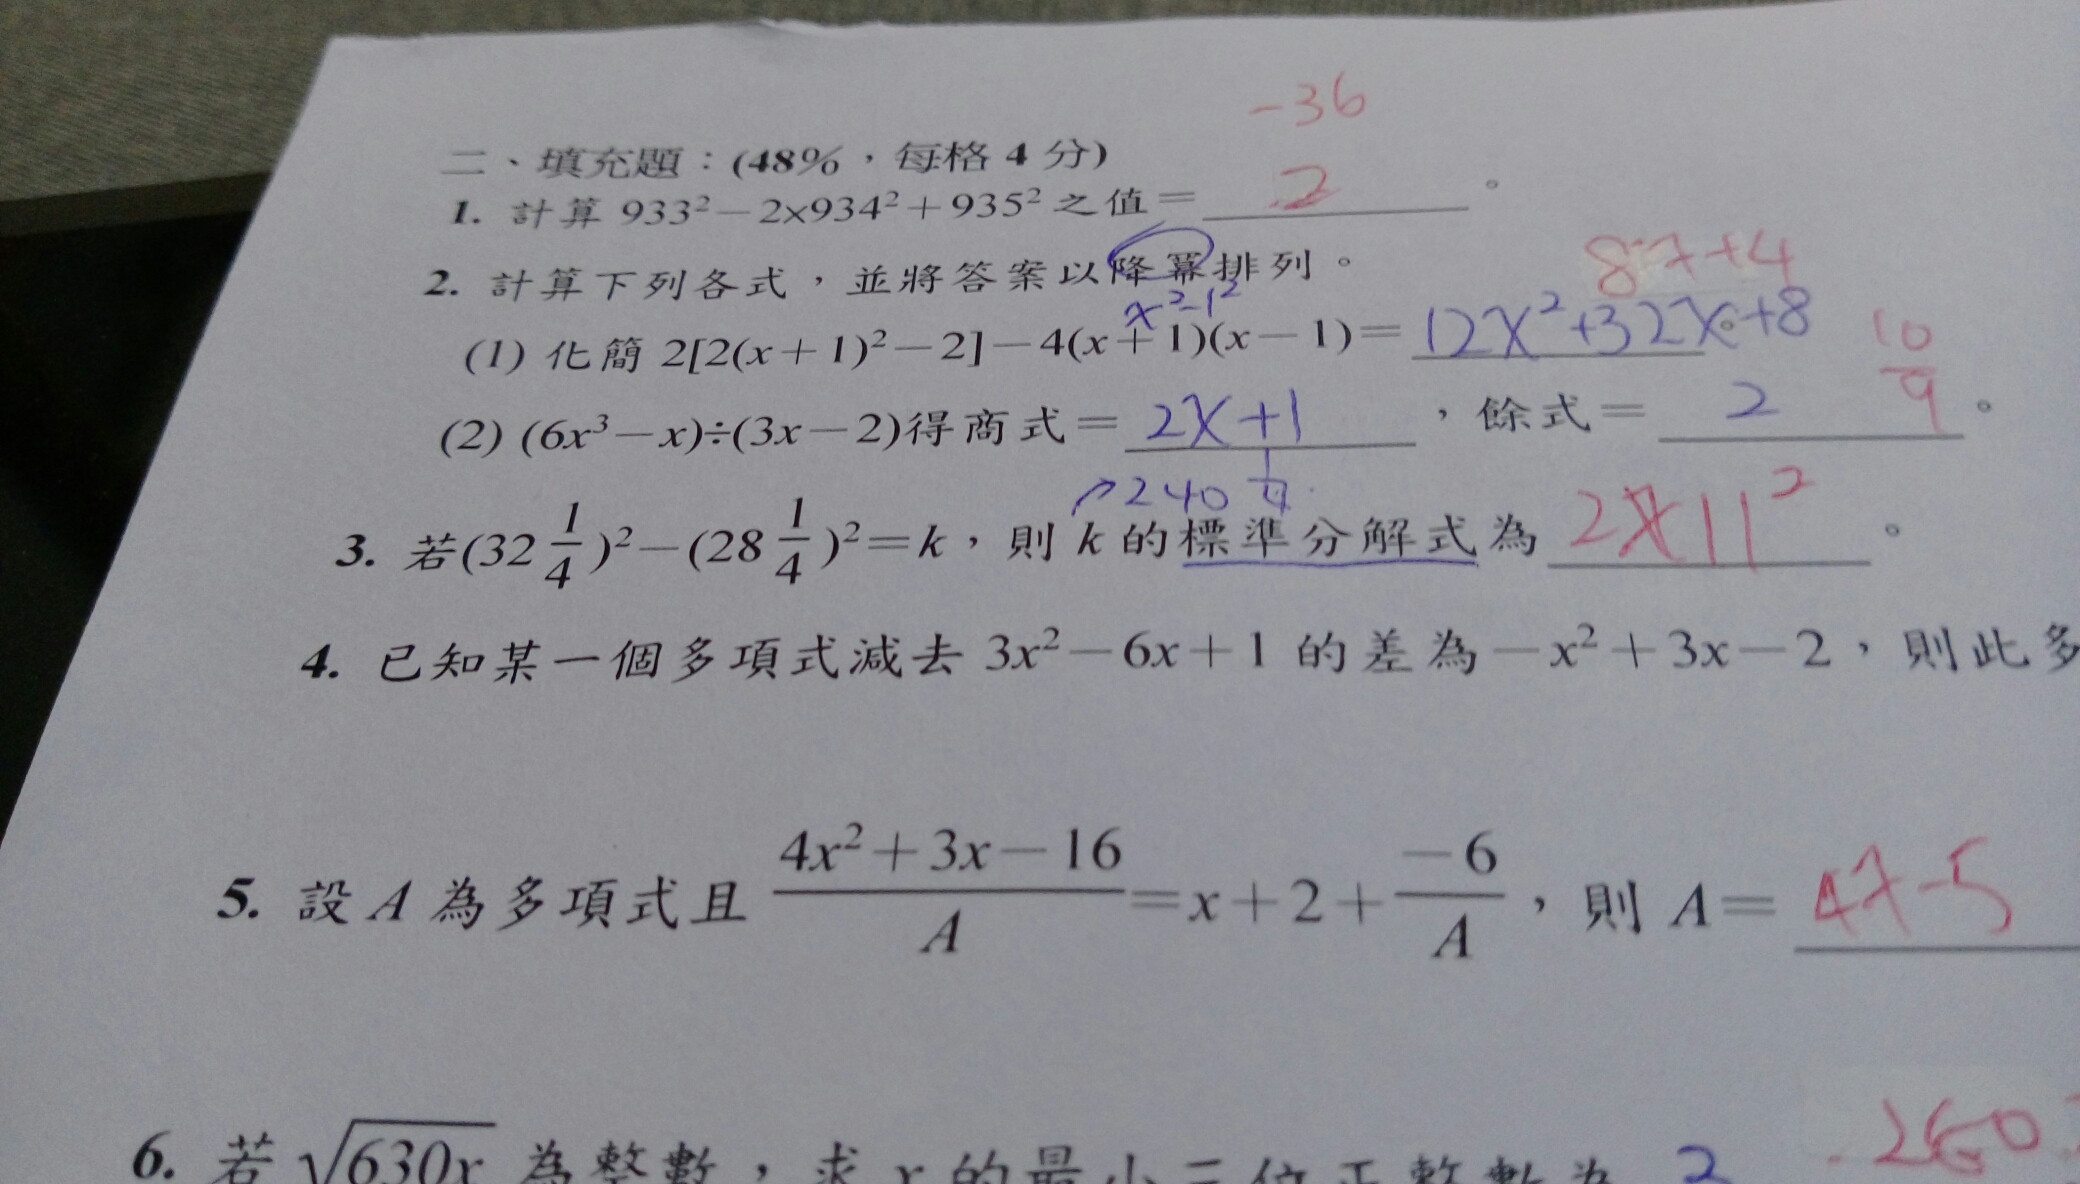 -36
二、填充題：(48%，每格 4 分)
1. 計算 933²－2×934²＋935² 之值＝ 2 。
2. 計算下列各式，並將答案以降冪排列。
8x+4
x²-1²
(1) 化簡 2[2(x＋1)²－2]－4(x＋1)(x－1)＝ 12x²+32x+8 。
(2) (6x³－x)÷(3x－2)得商式＝ 2x+1 ，餘式＝ 2 10/9 。
240 1/4
3. 若(32 1/4)²－(28 1/4)²＝k，則 k 的標準分解式為 2×11² 。
4. 已知某一個多項式減去 3x²－6x＋1 的差為－x²＋3x－2，則此多
5. 設 A 為多項式且 (4x²＋3x－16)/A＝x＋2＋(－6)/A，則 A＝ 4x-5
6. 若 √630x 為整數，求 x 的最小三位正整數為 2 260